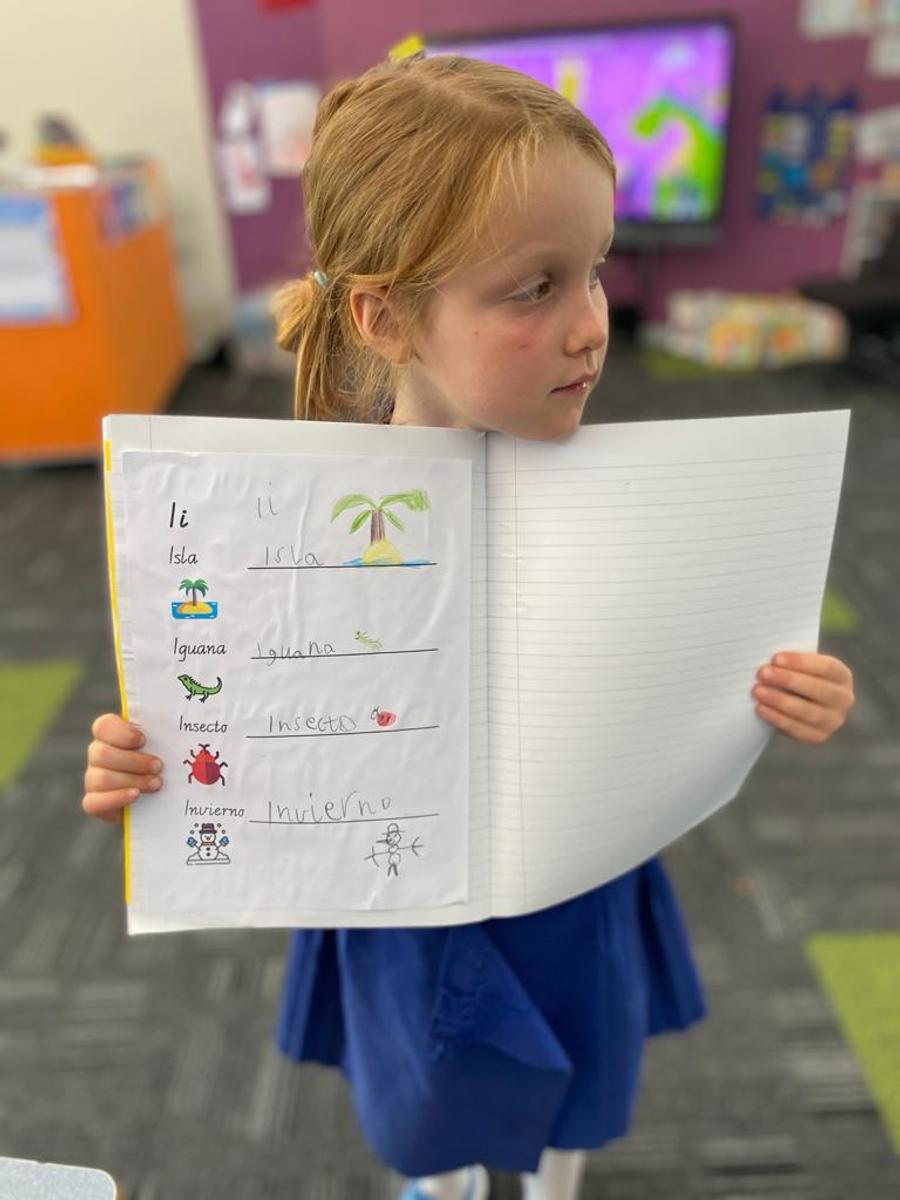 Ii ii
Isla Isla
Iguana Iguana
Insecto Insecto
Invierno Invierno